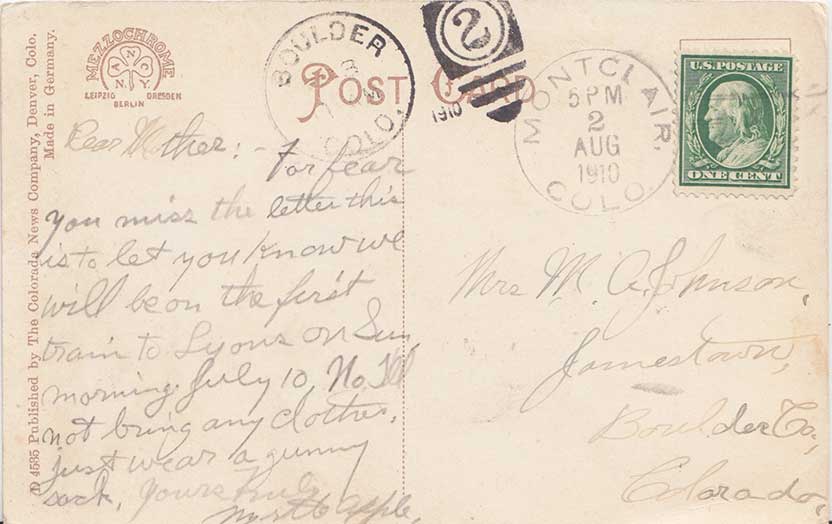 D 4535 Published by The Colorado News Company, Denver, Colo.
Made in Germany.
MEZZOCHROME
A N C
N.Y.
LEIPZIG DRESDEN
BERLIN
POST CARD
BOULDER
COLO.
2
1910
MONTCLAIR,
5 PM
2
AUG
1910
COLO.
U.S. POSTAGE
ONE CENT
Dear Mother:- For fear
you miss the letter this
is to let you know we
will be on the first
train to Lyons on Sun.
morning July 10,
not bring any clothes,
just wear a gunny
sack, Yours truly
Apple.
Mrs M. A. Johnson,
Jamestown,
Boulder Co,
Colorado,